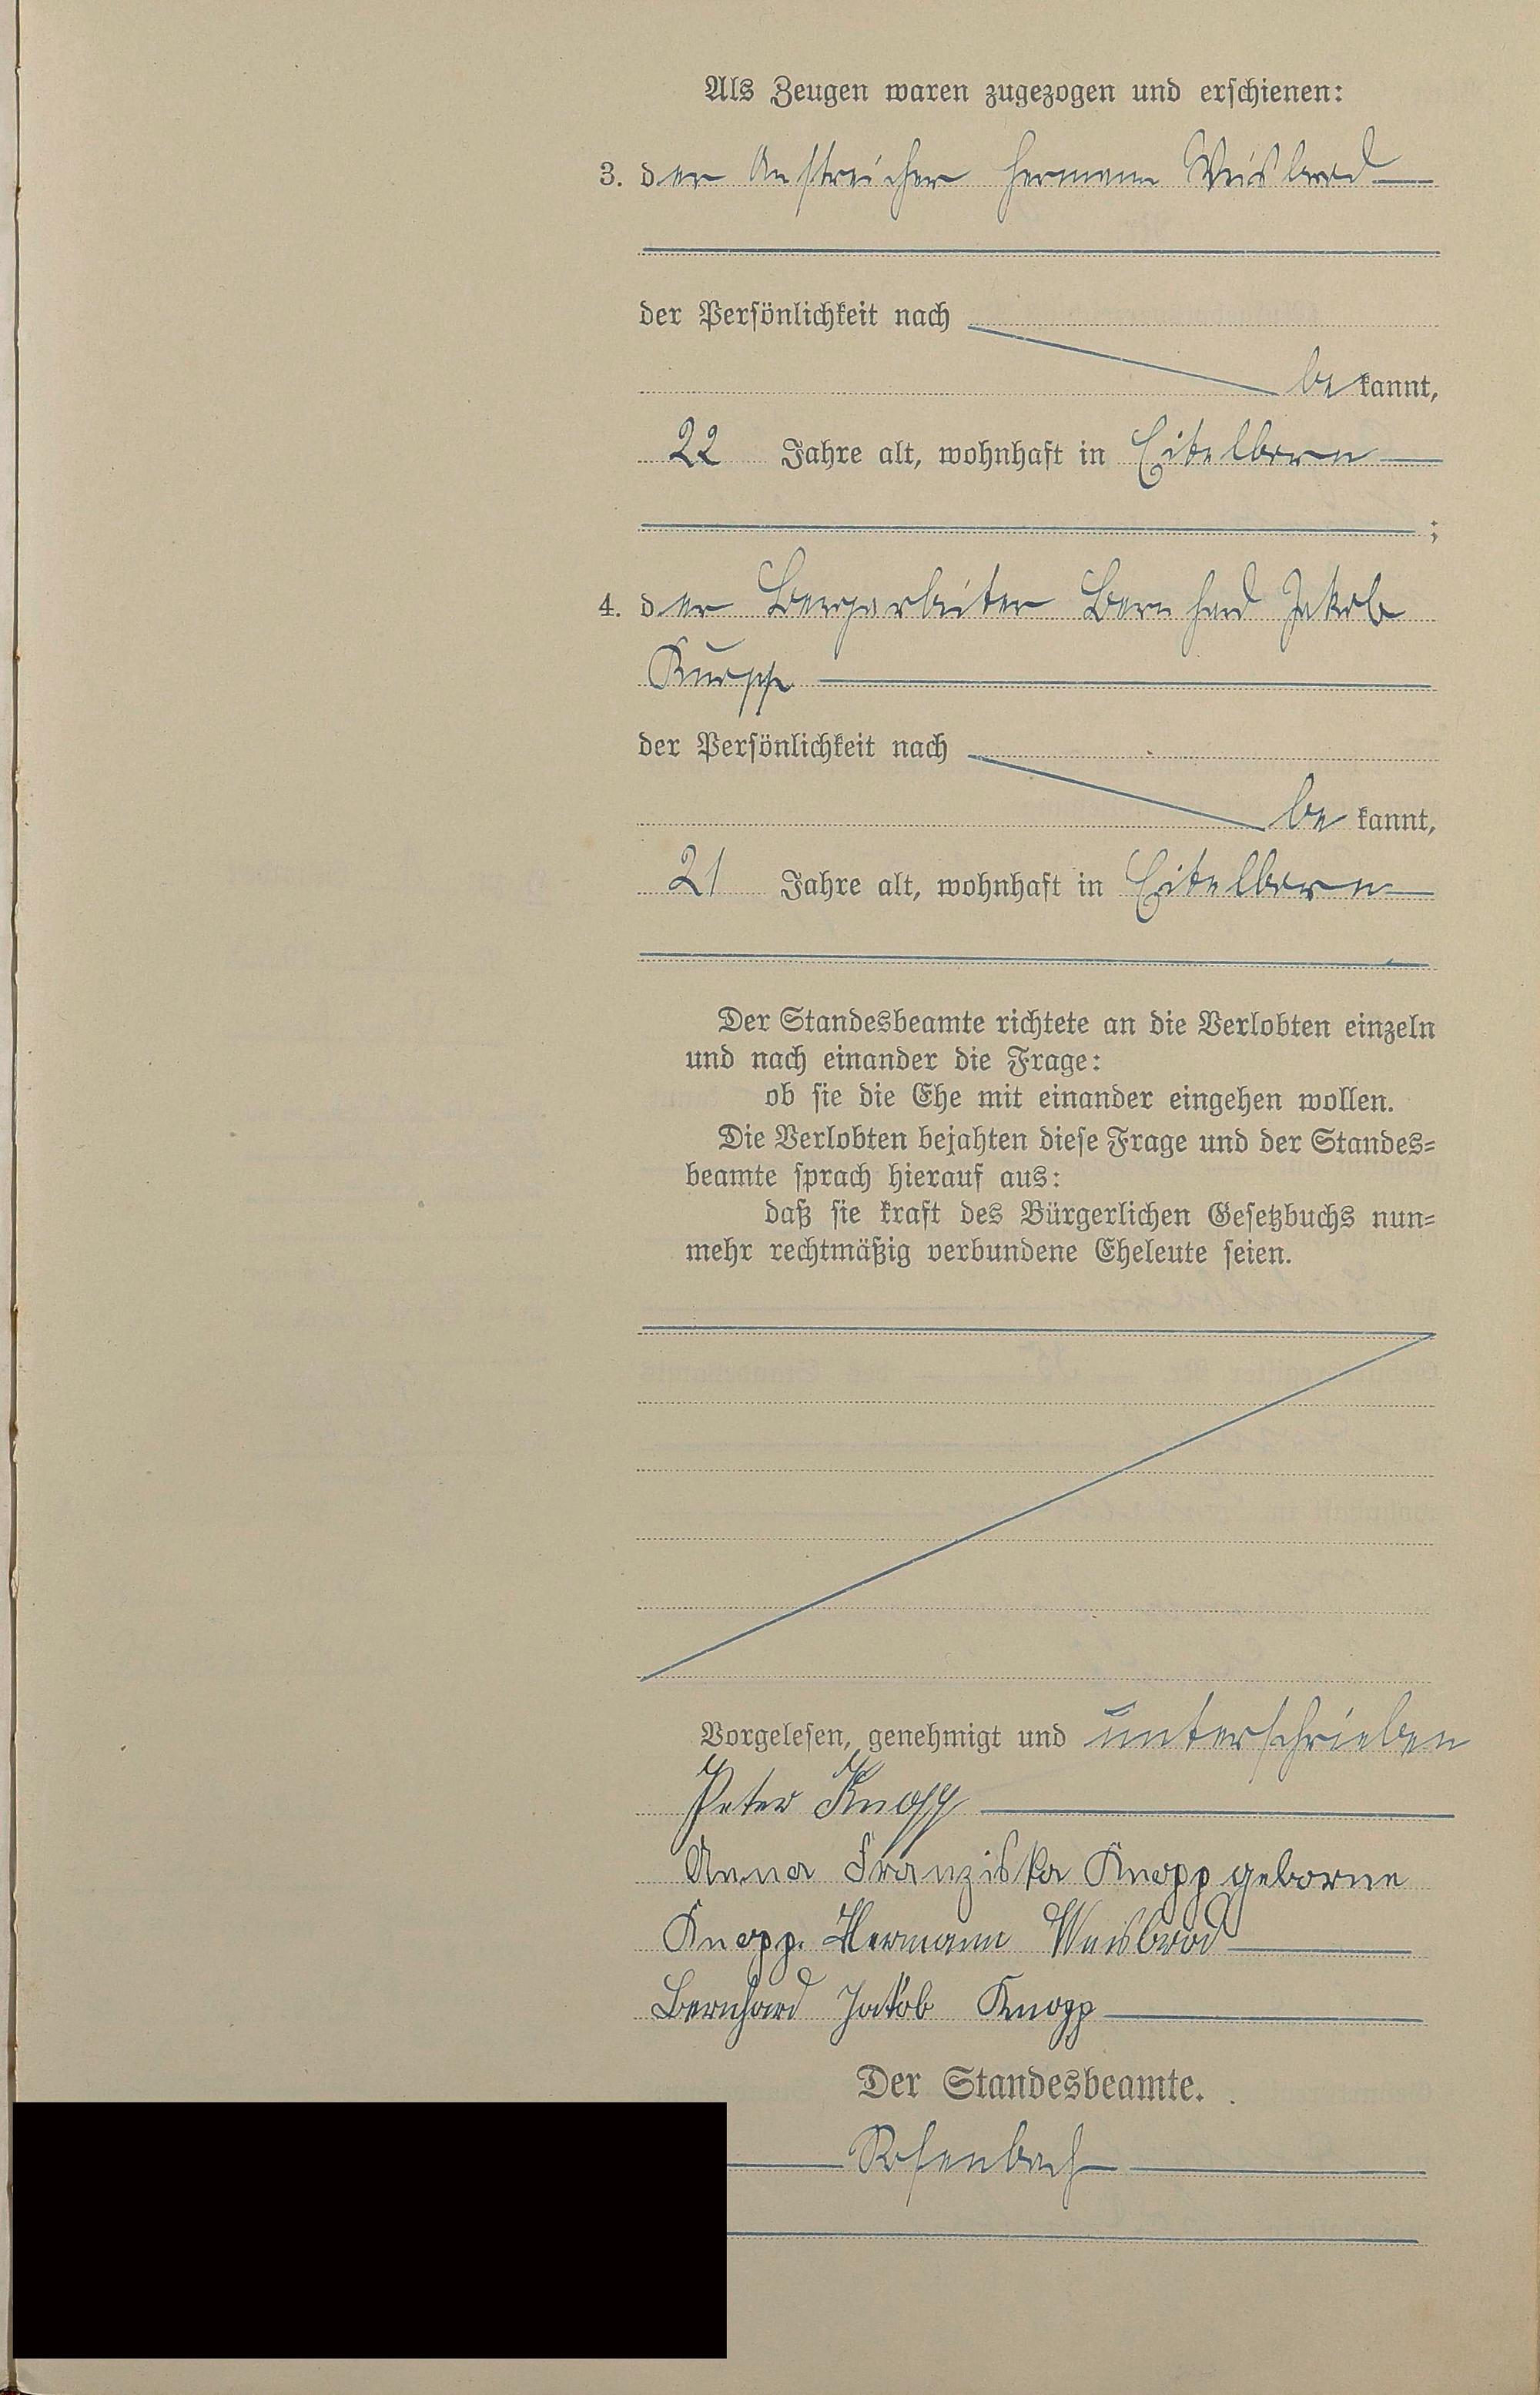 Als Zeugen waren zugezogen und erschienen:
3. der Anstreicher Hermann Weisbrod
der Persönlichkeit nach
be kannt,
22 Jahre alt, wohnhaft in Eitelborn
;
4. der Bergarbeiter Bernhard Jakob
Knopp
der Persönlichkeit nach
be kannt,
21 Jahre alt, wohnhaft in Eitelborn
Der Standesbeamte richtete an die Verlobten einzeln
und nach einander die Frage:
ob sie die Ehe mit einander eingehen wollen.
Die Verlobten bejahten diese Frage und der Standes=
beamte sprach hierauf aus:
daß sie kraft des Bürgerlichen Gesetzbuchs nun=
mehr rechtmäßig verbundene Eheleute seien.
Vorgelesen, genehmigt und unterschrieben
Peter Knopp
Anna Franziska Knopp geborne
Knopp. Hermann Weisbrod
Bernhard Jakob Knopp
Der Standesbeamte.
Rosenbach